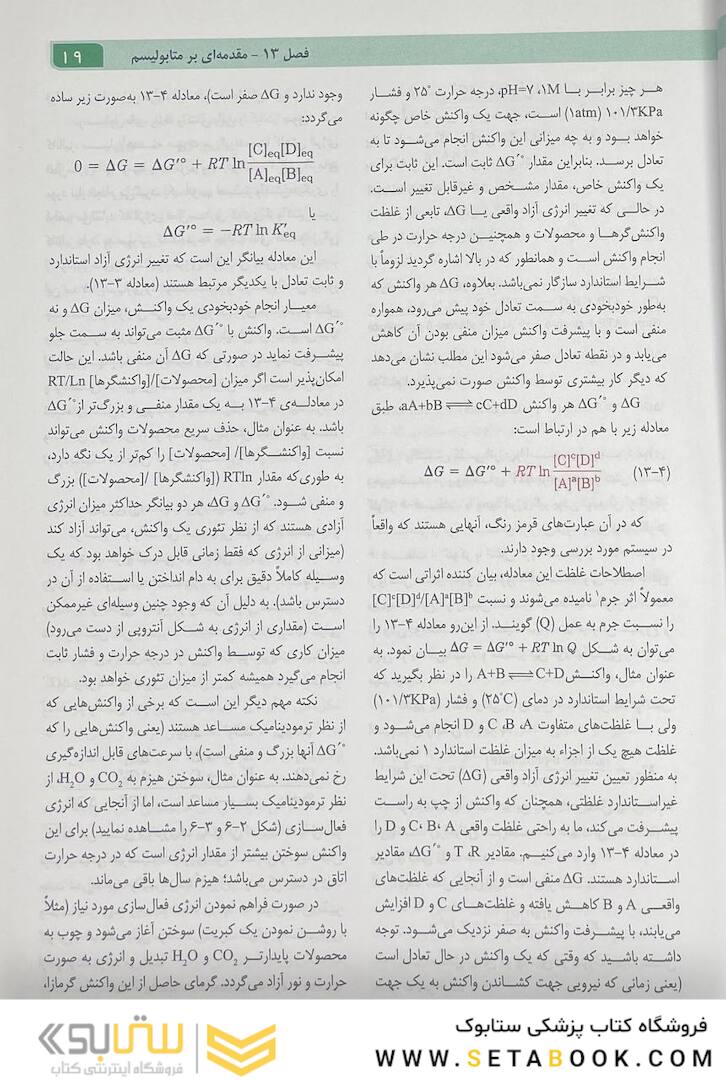 ۱۹
فصل ۱۳ - مقدمه‌ای بر متابولیسم
هر چیز برابر با ۱M، pH=۷، درجه حرارت ۲۵° و فشار
۱۰۱/۳KPa (۱atm) است، جهت یک واکنش خاص چگونه
خواهد بود و به چه میزانی این واکنش انجام می‌شود تا به
تعادل برسد. بنابراین مقدار ΔG´° ثابت است. این ثابت برای
یک واکنش خاص، مقدار مشخص و غیرقابل تغییر است.
در حالی که تغییر انرژی آزاد واقعی یا ΔG، تابعی از غلظت
واکنش‌گرها و محصولات و همچنین درجه حرارت در طی
انجام واکنش است و همانطور که در بالا اشاره گردید لزوماً با
شرایط استاندارد سازگار نمی‌باشد. بعلاوه، ΔG هر واکنش که
به‌طور خودبخودی به سمت تعادل خود پیش می‌رود، همواره
منفی است و با پیشرفت واکنش میزان منفی بودن آن کاهش
می‌یابد و در نقطه تعادل صفر می‌شود این مطلب نشان می‌دهد
که دیگر کار بیشتری توسط واکنش صورت نمی‌پذیرد.
ΔG و ΔG´° هر واکنش aA+bB ⇌ cC+dD، طبق
معادله زیر با هم در ارتباط است:
(۱۳-۴) ΔG = ΔG′° + RT ln [C]ᶜ[D]ᵈ / [A]ᵃ[B]ᵇ
که در آن عبارت‌های قرمز رنگ، آنهایی هستند که واقعاً
در سیستم مورد بررسی وجود دارند.
اصطلاحات غلظت این معادله، بیان کننده اثراتی است که
معمولاً اثر جرم۱ نامیده می‌شوند و نسبت [C]ᶜ[D]ᵈ/[A]ᵃ[B]ᵇ
را نسبت جرم به عمل (Q) گویند. از این‌رو معادله ۴-۱۳ را
می‌توان به شکل ΔG = ΔG′° + RT ln Q بیان نمود. به
عنوان مثال، واکنش A+B ⇌ C+D را در نظر بگیرید که
تحت شرایط استاندارد در دمای (۲۵°C) و فشار (۱۰۱/۳KPa)
ولی با غلظت‌های متفاوت A، B، C و D انجام می‌شود و
غلظت هیچ یک از اجزاء به میزان غلظت استاندارد ۱ نمی‌باشد.
به منظور تعیین تغییر انرژی آزاد واقعی (ΔG) تحت این شرایط
غیراستاندارد غلظتی، همچنان که واکنش از چپ به راست
پیشرفت می‌کند، ما به راحتی غلظت واقعی A ،B ،C و D را
در معادله ۴-۱۳ وارد می‌کنیم. مقادیر R، T و ΔG´°، مقادیر
استاندارد هستند. ΔG منفی است و از آنجایی که غلظت‌های
واقعی A و B کاهش یافته و غلظت‌های C و D افزایش
می‌یابند، با پیشرفت واکنش به صفر نزدیک می‌شود. توجه
داشته باشید که وقتی که یک واکنش در حال تعادل است
(یعنی زمانی که نیرویی جهت کشاندن واکنش به یک جهت
وجود ندارد و ΔG صفر است)، معادله ۴-۱۳ به‌صورت زیر ساده
می‌گردد:
0 = ΔG = ΔG′° + RT ln [C]eq[D]eq / [A]eq[B]eq
یا
ΔG′° = −RT ln K′eq
این معادله بیانگر این است که تغییر انرژی آزاد استاندارد
و ثابت تعادل با یکدیگر مرتبط هستند (معادله ۳-۱۳).
معیار انجام خودبخودی یک واکنش، میزان ΔG و نه
ΔG´° است. واکنش با ΔG´° مثبت می‌تواند به سمت جلو
پیشرفت نماید در صورتی که ΔG آن منفی باشد. این حالت
امکان‌پذیر است اگر میزان [محصولات]/[واکنشگرها] RT/Ln
در معادله‌ی ۴-۱۳ به یک مقدار منفی و بزرگ‌تر از ΔG´°
باشد. به عنوان مثال، حذف سریع محصولات واکنش می‌تواند
نسبت [واکنشگرها]/ [محصولات] را کم‌تر از یک نگه دارد،
به طوری‌که مقدار RTln ([واکنشگرها] /[محصولات]) بزرگ
و منفی شود. ΔG´° و ΔG، هر دو بیانگر حداکثر میزان انرژی
آزادی هستند که از نظر تئوری یک واکنش، می‌تواند آزاد کند
(میزانی از انرژی که فقط زمانی قابل درک خواهد بود که یک
وسیله کاملاً دقیق برای به دام انداختن یا استفاده از آن در
دسترس باشد). به دلیل آن که وجود چنین وسیله‌ای غیرممکن
است (مقداری از انرژی به شکل آنتروپی از دست می‌رود)
میزان کاری که توسط واکنش در درجه حرارت و فشار ثابت
انجام می‌گیرد همیشه کمتر از میزان تئوری خواهد بود.
نکته مهم دیگر این است که برخی از واکنش‌هایی که
از نظر ترمودینامیک مساعد هستند (یعنی واکنش‌هایی را که
ΔG´° آنها بزرگ و منفی است)، با سرعت‌های قابل اندازه‌گیری
رخ نمی‌دهند. به عنوان مثال، سوختن هیزم به CO₂ و H₂O، از
نظر ترمودینامیک بسیار مساعد است، اما از آنجایی که انرژی
فعال‌سازی (شکل ۲-۶ و ۳-۶ را مشاهده نمایید) برای این
واکنش سوختن بیشتر از مقدار انرژی است که در درجه حرارت
اتاق در دسترس می‌باشد؛ هیزم سال‌ها باقی می‌ماند.
در صورت فراهم نمودن انرژی فعال‌سازی مورد نیاز (مثلاً
با روشن نمودن یک کبریت) سوختن آغاز می‌شود و چوب به
محصولات پایدارتر CO₂ و H₂O تبدیل و انرژی به صورت
حرارت و نور آزاد می‌گردد. گرمای حاصل از این واکنش گرمازا،
فروشگاه کتاب پزشکی ستابوک
WWW.SETABOOK.COM
ستابوک
فروشگاه اینترنتی کتاب